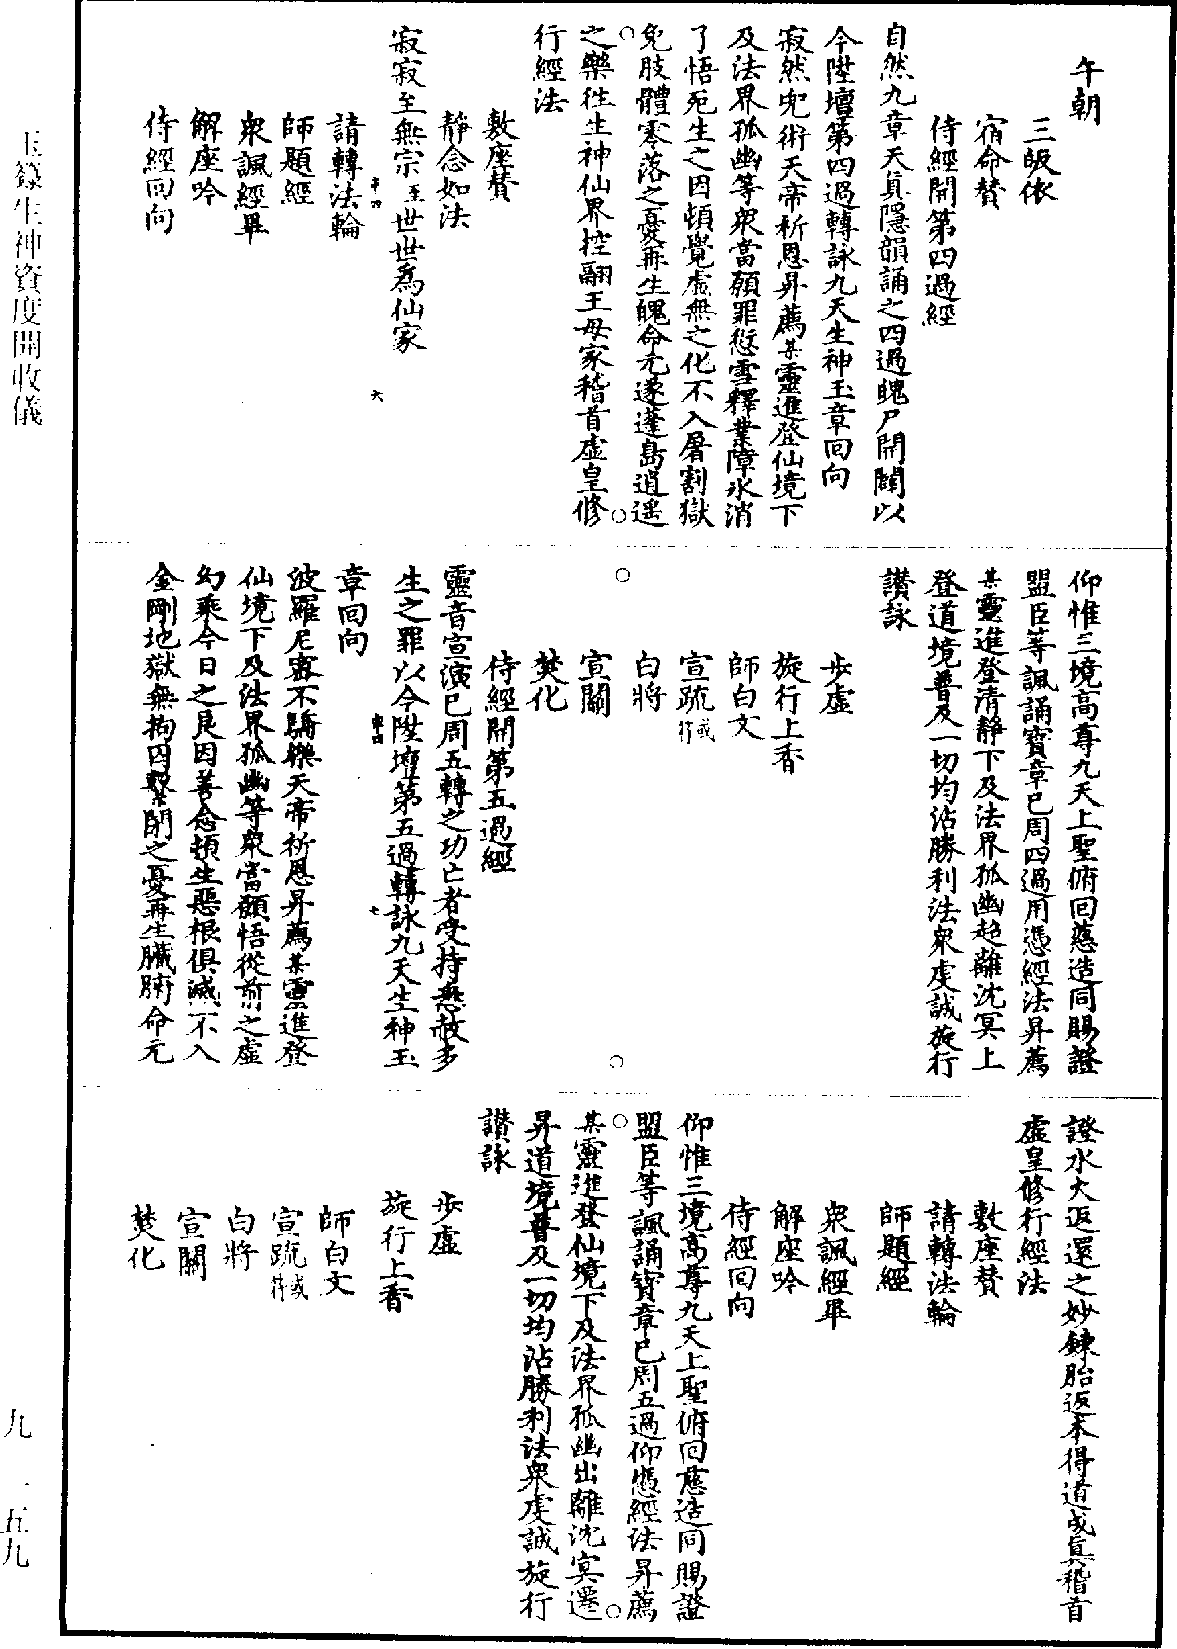 午朝
三皈依
宿命贊
侍經開第四過經
自然九章天眞隱韻誦之四過魄尸開關以
今陞壇第四過轉詠九天生神玉章回向
寂然兜術天帝祈恩昇薦某靈進登仙境下
及法界孤幽等衆當願罪愆雪釋業障氷消
了悟死生之因頓覺虛無之化不入屠割獄
免肢體零落之憂再生魄命元遂蓬島逍遥
之樂徃生神仙界控翮王母家稽首虛皇修
行經法
敷座贊
靜念如法
寂寂至無宗至世世爲仙家
請轉法輪
師題經
衆諷經畢
解座吟
侍經回向
六
仰惟三境高尊九天上聖俯回慈造同賜證
盟臣等諷誦寶章已周四過用憑經法昇薦
某靈進登清靜下及法界孤幽起離沈冥上
登道境普及一切均沾勝利法衆虔誠旋行
讃詠
步虛
旋行上香
師白文
宣疏或符
白將
宣關
焚化
侍經開第五過經
靈音宣演已周五轉之功亡者受持悉赦多
生之罪以今陞壇第五過轉詠九天生神玉
章回向
七
波羅尼蜜不驕樂天帝祈恩昇薦某靈進登
仙境下及法界孤幽等衆當願悟從前之虛
幻乘今日之良因善念頓生惡根俱滅不入
金剛地獄無拘囚繫閉之憂再生臟腑命元
證水火返還之妙鍊胎返本得道成眞稽首
虛皇修行經法
敷座贊
請轉法輪
師題經
衆諷經畢
解座吟
侍經回向
仰惟三境高尊九天上聖俯回慈造同賜證
盟臣等諷誦寶章已周五過仰憑經法昇薦
某靈進登仙境下及法界孤幽出離沈冥遷
昇道境普及一切均沾勝利法衆虔誠旋行
讃詠
步虛
旋行上香
師白文
宣疏或符
白將
宣關
焚化
玉籙生神資度開收儀
九 一五九